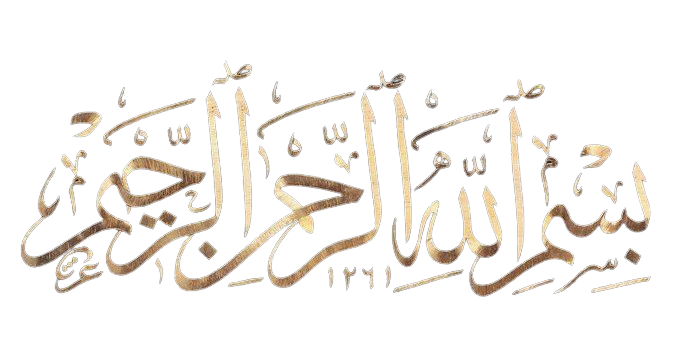 بِسْمِ ٱللَّهِ ٱلرَّحْمَٰنِ ٱلرَّحِيمِ
١٢٦١